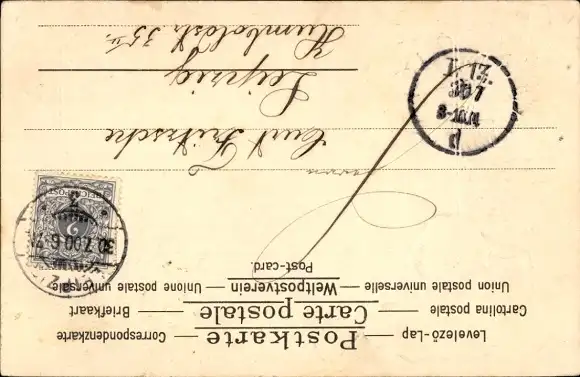 Postkarte
Carte postale
Weltpostverein
Post-card.
Correspondenzkarte
Levelező-Lap
Briefkaart
Cartolina postale
Unione postale universale
Union postale universelle
Herrn
Curt Fritzsche
Leipzig
Humboldtstr. 35
REICHSPOST
30.7.00.6-7
30 7
8-